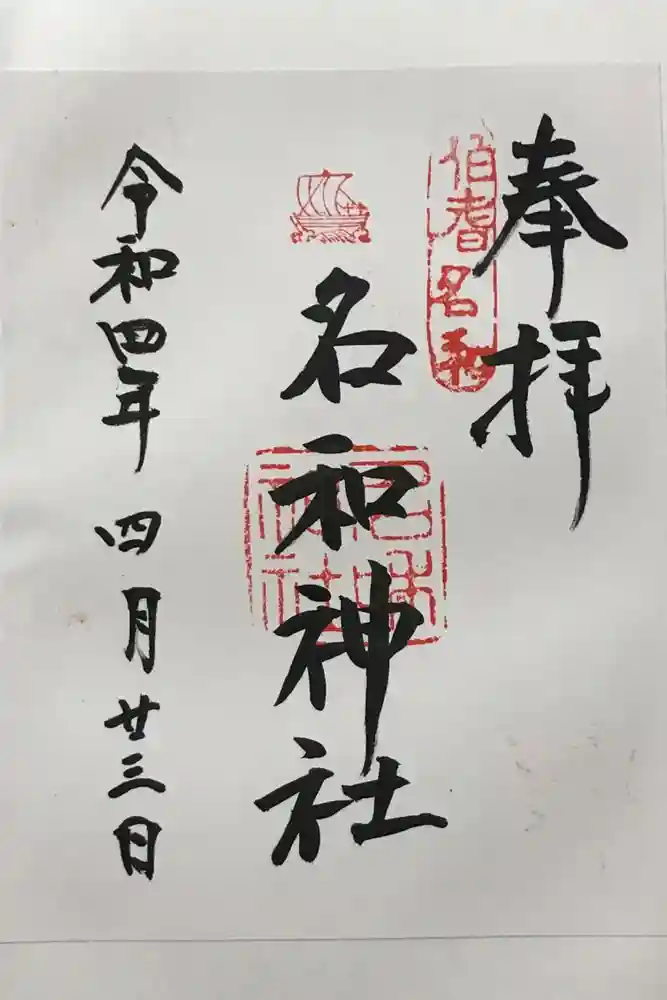 奉拝
伯耆名和
名和神社
名和神社
令和四年 四月廿三日